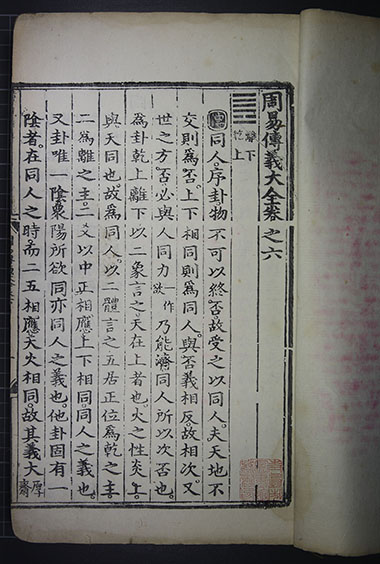 周易傳義大全卷之六
離下
乾上
同人序卦物不可以終否故受之以同人夫天地不
交則爲否上下相同則爲同人與否義相反故相次又
世之方否必與人同力一作欲乃能濟同人所以次否也
爲卦乾上離下以二象言之天在上者也火之性炎上
與天同也故爲同人以二體言之五居正位爲乾之主
二爲離之主二爻以中正相應上下相同同人之義也
又卦唯一陰衆陽所欲同亦同人之義也他卦固有一
陰者在同人之時而二五相應天火相同故其義大